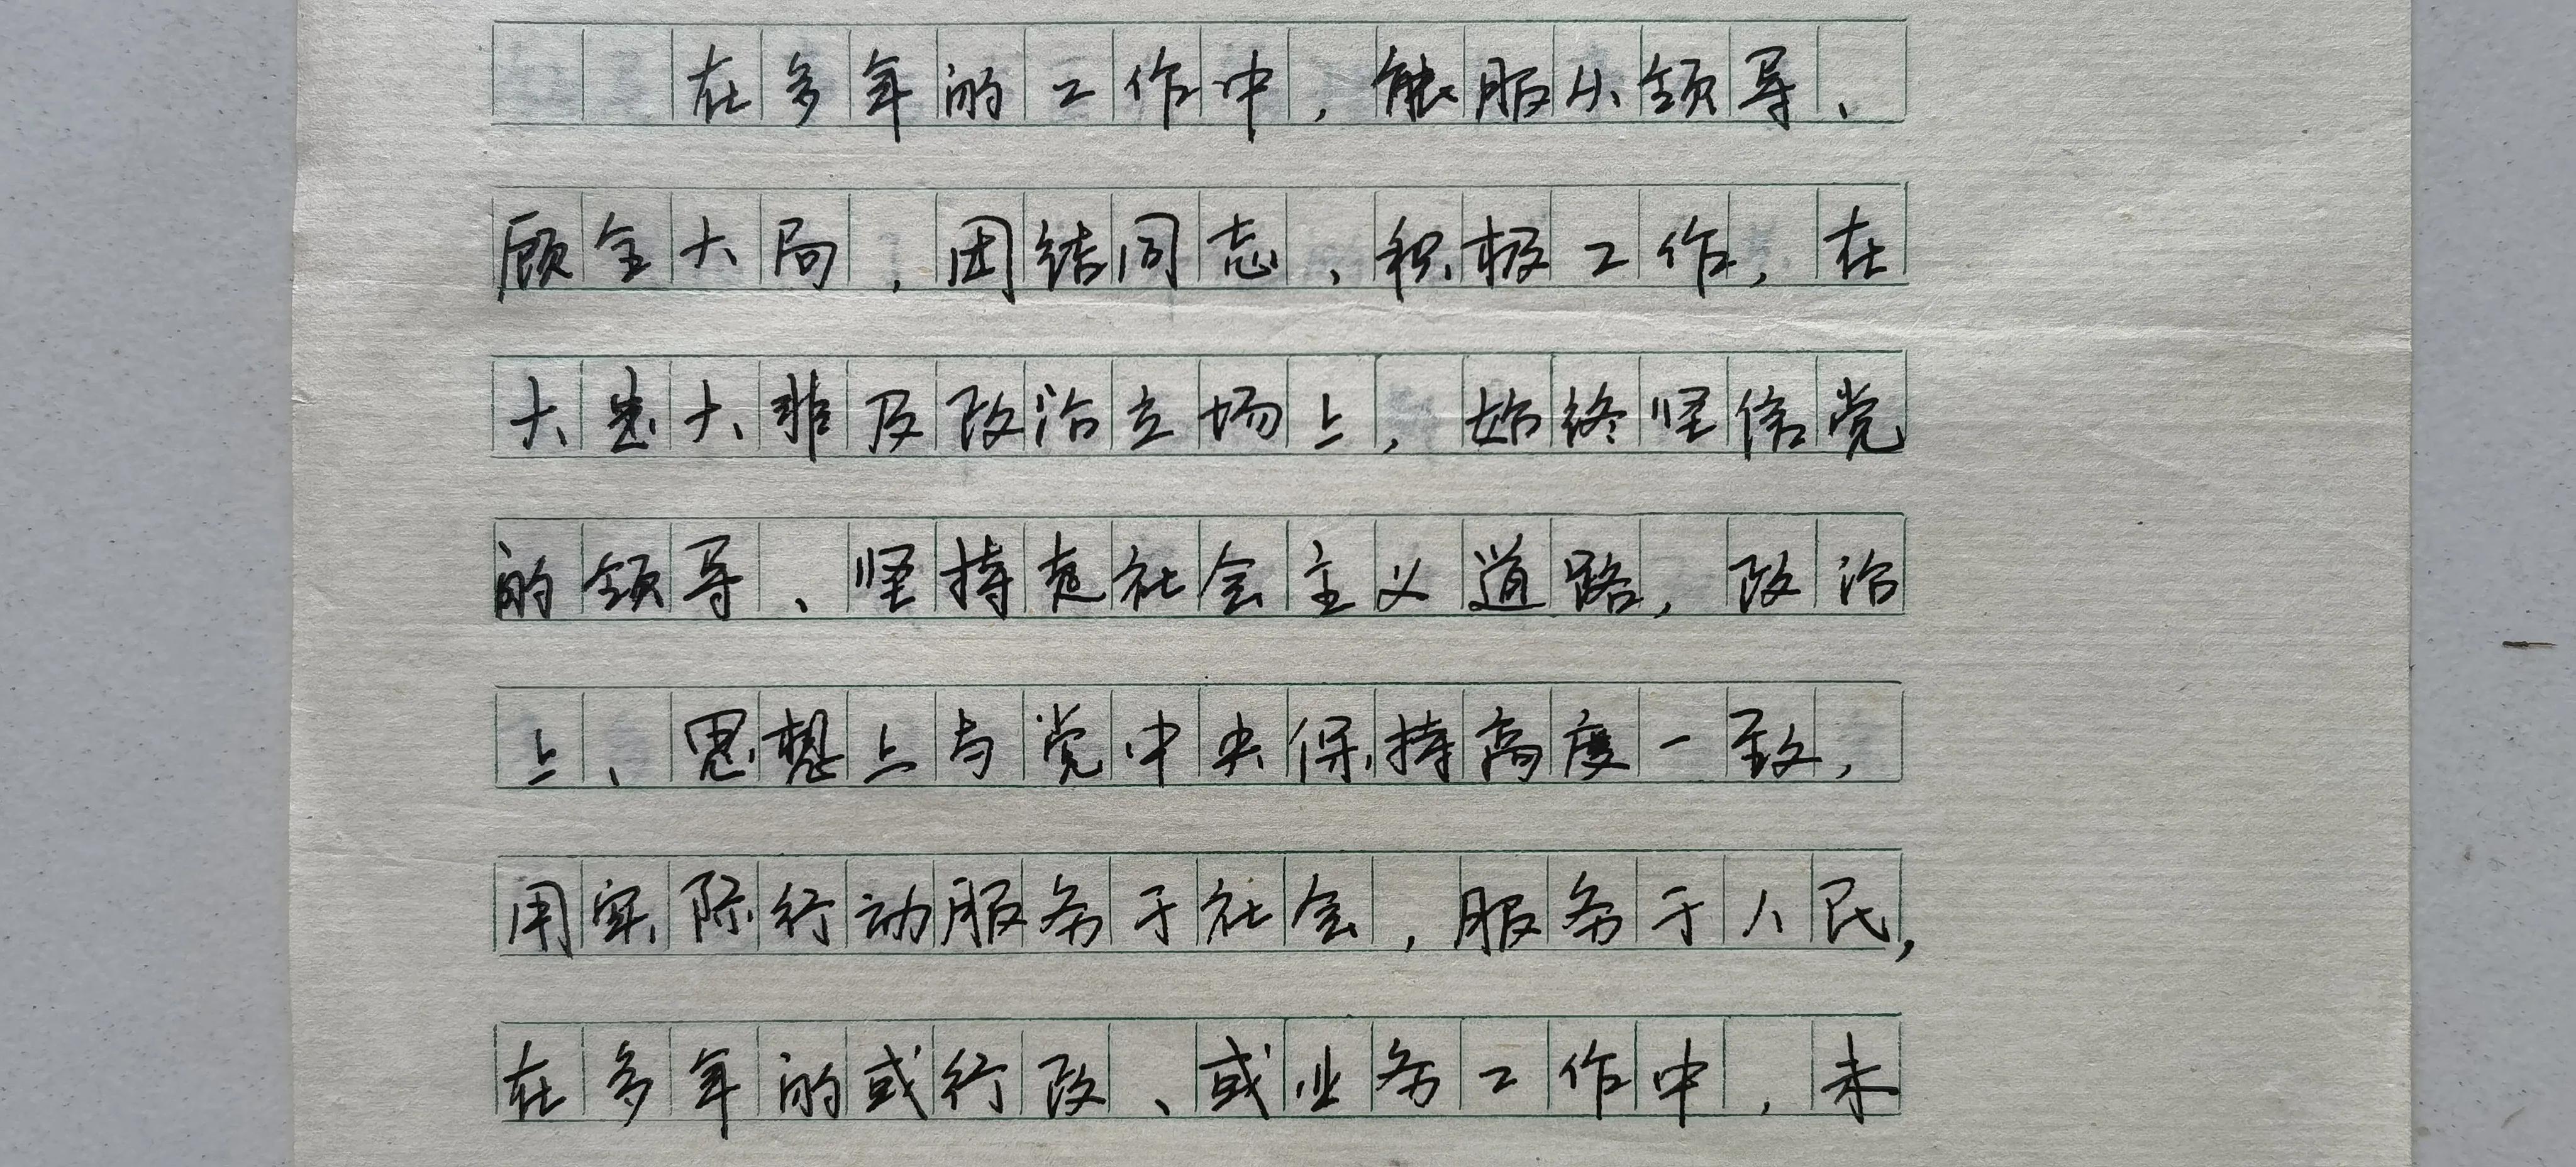 在多年的工作中，能服从领导、
顾全大局，团结同志、积极工作，在
大患大非及政治立场上，始终坚信党
的领导、坚持走社会主义道路，政治
上、思想上与党中央保持高度一致，
用实际行动服务于社会，服务于人民，
在多年的或行政、或业务工作中，未